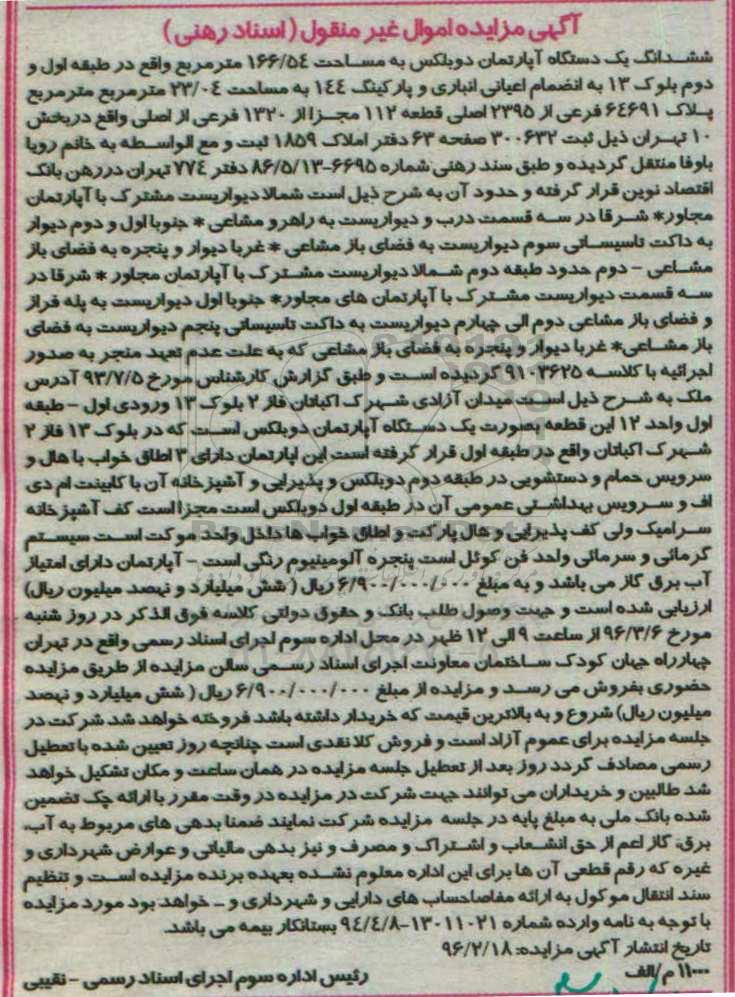 آگهی مزایده اموال غیر منقول (اسناد رهنی)
ششدانگ یک دستگاه آپارتمان دوبلکس به مساحت ۱۶۶/۵۴ مترمربع واقع در طبقه اول و
دوم بلوک ۱۳ به انضمام اعیانی انباری و پارکینگ ۱۴۴ به مساحت ۲۳/۰۴ مترمربع مترمربع
پلاک ۶۴۶۹۱ فرعی از ۲۳۹۵ اصلی قطعه ۱۱۲ مجزا از ۱۳۲۰ فرعی از اصلی واقع در بخش
۱۰ تهران ذیل ثبت ۳۰۰۶۳۲ صفحه ۶۳ دفتر املاک ۱۸۵۹ ثبت و مع الواسطه به خانم رویا
باوفا منتقل گردیده و طبق سند رهنی شماره ۶۶۹۵-۸۶/۵/۱۳ دفتر ۷۷۴ تهران در رهن بانک
اقتصاد نوین قرار گرفته و حدود آن به شرح ذیل است شمالا دیواریست مشترک با آپارتمان
مجاور* شرقا در سه قسمت درب و دیواریست به راهرو مشاعی * جنوبا اول و دوم دیوار
به داکت تاسیساتی سوم دیواریست به فضای باز مشاعی * غربا دیوار و پنجره به فضای باز
مشاعی - دوم حدود طبقه دوم شمالا دیواریست مشترک با آپارتمان مجاور * شرقا در
سه قسمت دیواریست مشترک با آپارتمان های مجاور* جنوبا اول دیواریست به پله فراز
و فضای باز مشاعی دوم الی چهارم دیواریست به داکت تاسیساتی پنجم دیواریست به فضای
باز مشاعی* غربا دیوار و پنجره به فضای باز مشاعی که به علت عدم تعهد منجر به صدور
اجرائیه با کلاسه ۹۱۰۳۶۲۵ گردیده است و طبق گزارش کارشناس مورخ ۹۳/۷/۵ آدرس
ملک به شرح ذیل است میدان آزادی شهرک اکباتان فاز ۲ بلوک ۱۳ ورودی اول - طبقه
اول واحد ۱۲ این قطعه بصورت یک دستگاه آپارتمان دوبلکس است که در بلوک ۱۳ فاز ۲
شهرک اکباتان واقع در طبقه اول قرار گرفته است این اپارتمان دارای ۳ اطاق خواب با هال و
سرویس حمام و دستشویی در طبقه دوم دوبلکس و پذیرایی و آشپزخانه آن با کابینت ام دی
اف و سرویس بهداشتی عمومی آن در طبقه اول دوبلکس است مجزا است کف آشپزخانه
سرامیک ولی کف پذیرایی و هال پارکت و اطاق خواب ها داخل واحد موکت است سیستم
گرمائی و سرمائی واحد فن کوئل است پنجره آلومینیوم رنگی است - آپارتمان دارای امتیاز
آب برق گاز می باشد و به مبلغ ۶/۹۰۰/۰۰۰/۰۰۰ ریال (شش میلیارد و نهصد میلیون ریال)
ارزیابی شده است و جهت وصول طلب بانک و حقوق دولتی کلاسه فوق الذکر در روز شنبه
مورخ ۹۶/۳/۶ از ساعت ۹ الی ۱۲ ظهر در محل اداره سوم اجرای اسناد رسمی واقع در تهران
چهارراه جهان کودک ساختمان معاونت اجرای اسناد رسمی سالن مزایده از طریق مزایده
حضوری بفروش می رسد و مزایده از مبلغ ۶/۹۰۰/۰۰۰/۰۰۰ ریال (شش میلیارد و نهصد
میلیون ریال) شروع و به بالاترین قیمت که خریدار داشته باشد فروخته خواهد شد شرکت در
جلسه مزایده برای عموم آزاد است و فروش کلا نقدی است چنانچه روز تعیین شده با تعطیل
رسمی مصادف گردد روز بعد از تعطیل جلسه مزایده در همان ساعت و مکان تشکیل خواهد
شد طالبین و خریداران می توانند جهت شرکت در مزایده در وقت مقرر با ارائه چک تضمین
شده بانک ملی به مبلغ پایه در جلسه مزایده شرکت نمایند ضمنا بدهی های مربوط به آب،
برق، گاز اعم از حق انشعاب و اشتراک و مصرف و نیز بدهی مالیاتی و عوارض شهرداری و
غیره که رقم قطعی آن ها برای این اداره معلوم نشده بعهده برنده مزایده است و تنظیم
سند انتقال موکول به ارائه مفاصاحساب های دارایی و شهرداری و ـ خواهد بود مورد مزایده
با توجه به نامه وارده شماره ۱۳۰۱۱۰۲۱-۹۴/۴/۸ بستانکار بیمه می باشد.
تاریخ انتشار آگهی مزایده: ۹۶/۲/۱۸
۱۱۰۰۰ م/الف
رئیس اداره سوم اجرای اسناد رسمی - نقیبی